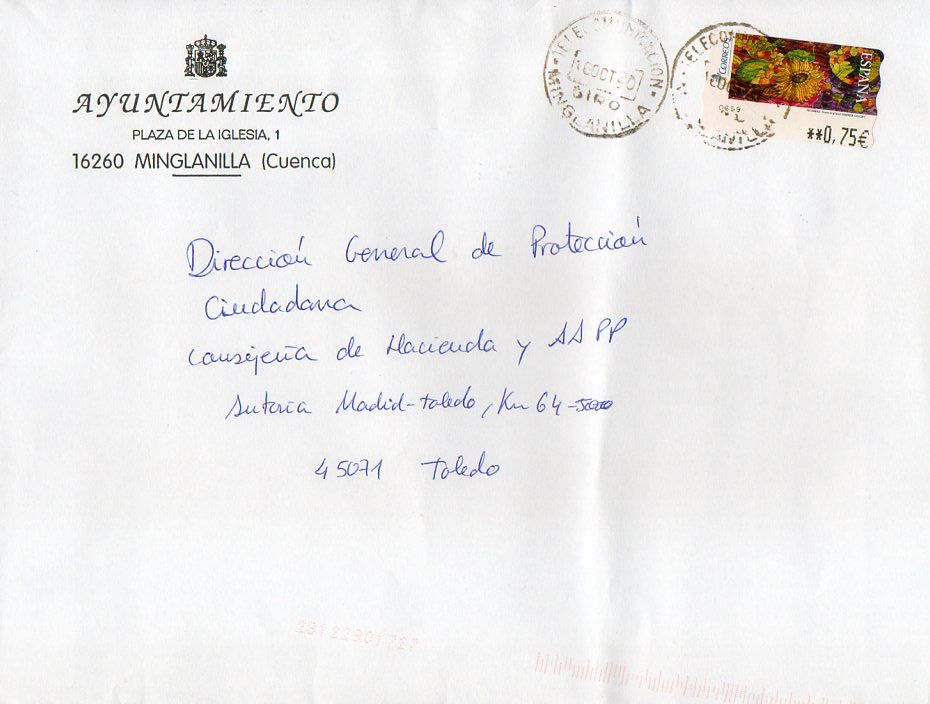 AYUNTAMIENTO
PLAZA DE LA IGLESIA, 1
16260 MINGLANILLA (Cuenca)
TELECOMUNICACION
OCT
GIRO
MINGLANILLA
TELECOM
CORREOS
ESPAÑA
**0,75€
Dirección General de Protección
Ciudadana
Consejería de Hacienda y AAPP
Autovía Madrid-Toledo, Km 64
45071 Toledo
28122901727